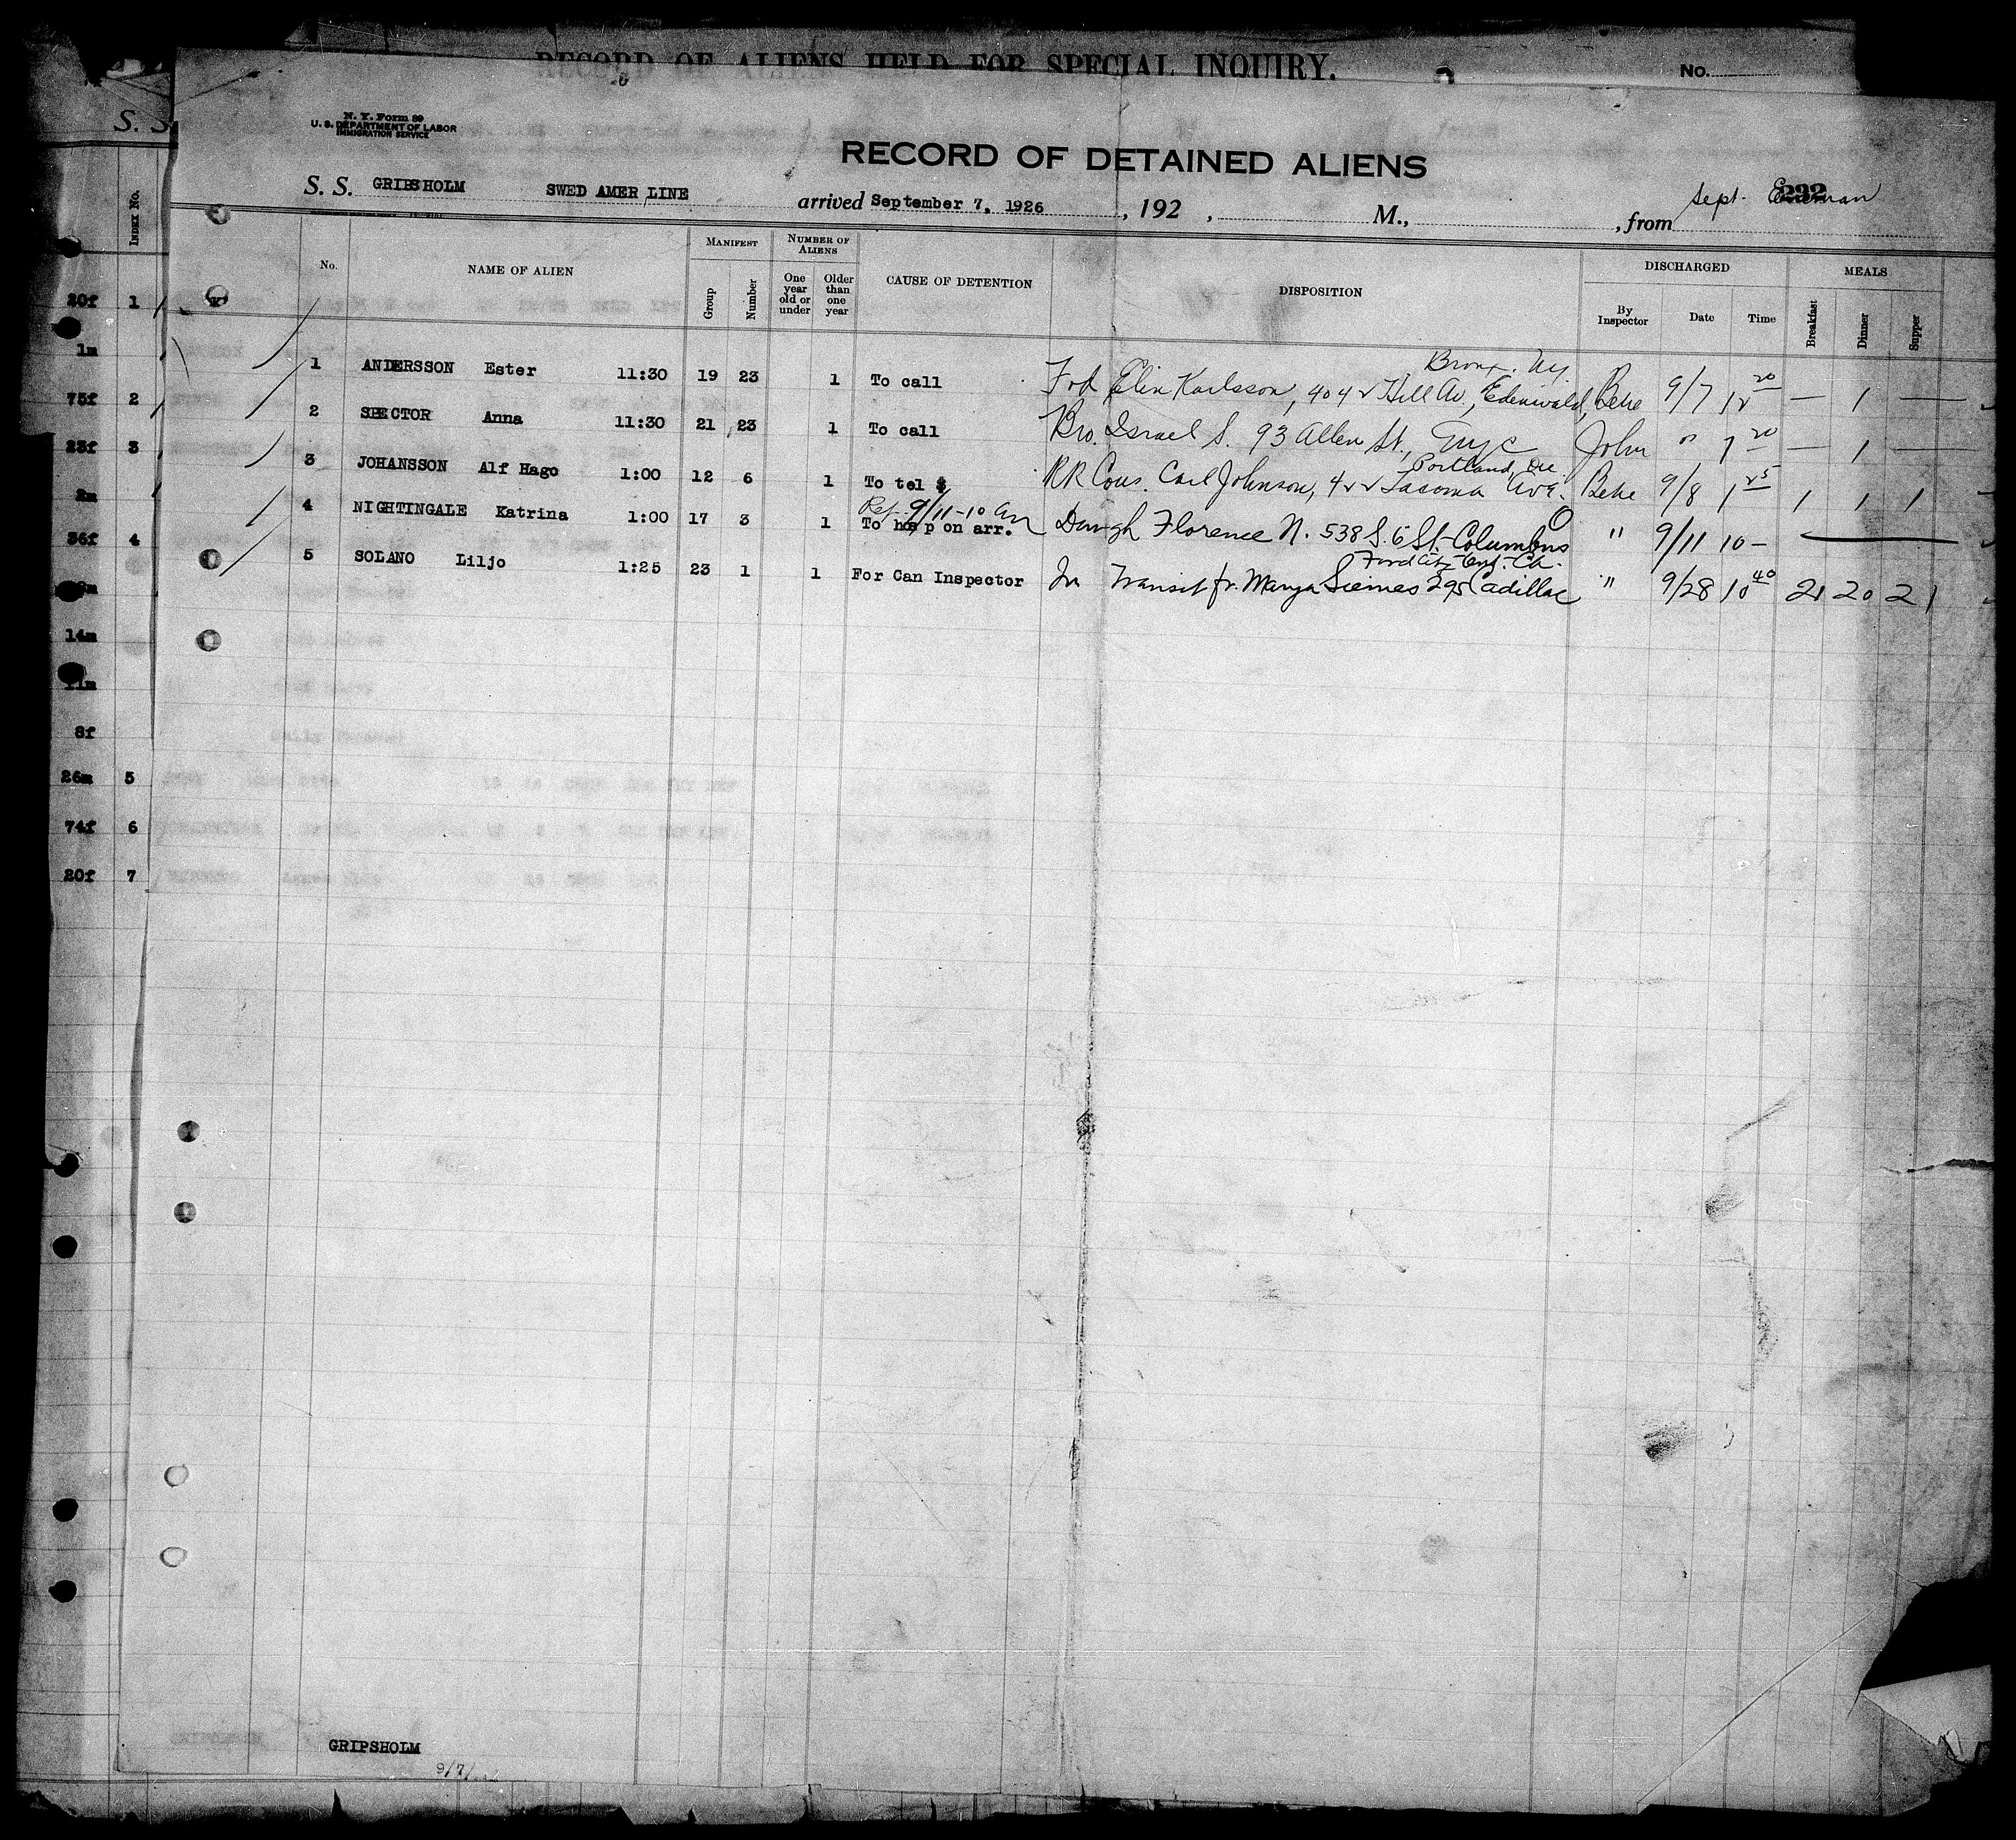 RECORD OF ALIENS HELD FOR SPECIAL INQUIRY.
No.
S. S.
N. Y. Form 89
U. S. DEPARTMENT OF LABOR
IMMIGRATION SERVICE
RECORD OF DETAINED ALIENS
232
S. S. GRIPSHOLM SWED AMER LINE arrived September 7, 1926, 192 , M., from Sept.
INDEX No.
No. NAME OF ALIEN MANIFEST Group Number NUMBER OF ALIENS One year old or under Older than one year CAUSE OF DETENTION DISPOSITION DISCHARGED By Inspector Date Time MEALS Breakfast Dinner Supper
20f 1
1m
75f 2
23f 3
2m
36f 4
14m
11m
8f
26m 5
74f 6
20f 7
Bronx. Ny.
1 ANDERSSON Ester 11:30 19 23 1 To call Frd Elin Karlsson, 4042 Hill Av., Edenwald, Behe 9/7 12 20 — 1 —
2 SPECTOR Anna 11:30 21 23 1 To call Bro. Israel S. 93 Allen St., NYC John " 1 20 — 1 —
Portland, Ore.
3 JOHANSSON Alf Hago 1:00 12 6 1 To tel $ RR Cous. Carl Johnson, 422 Tacoma Ave. Behe 9/8 1 25 1 1 1
Ret. 9/11-10 am
4 NIGHTINGALE Katrina 1:00 17 3 1 To hosp on arr. Daugh Florence N. 538 S. 6 St. Columbus O " 9/11 10 —
Ford City Ont. Ca.
5 SOLANO Liljo 1:25 23 1 1 For Can Inspector In Transit fr. Manya Siemes 295 Cadillac " 9/28 10 40 21 20 21
GRIPSHOLM
9/7/